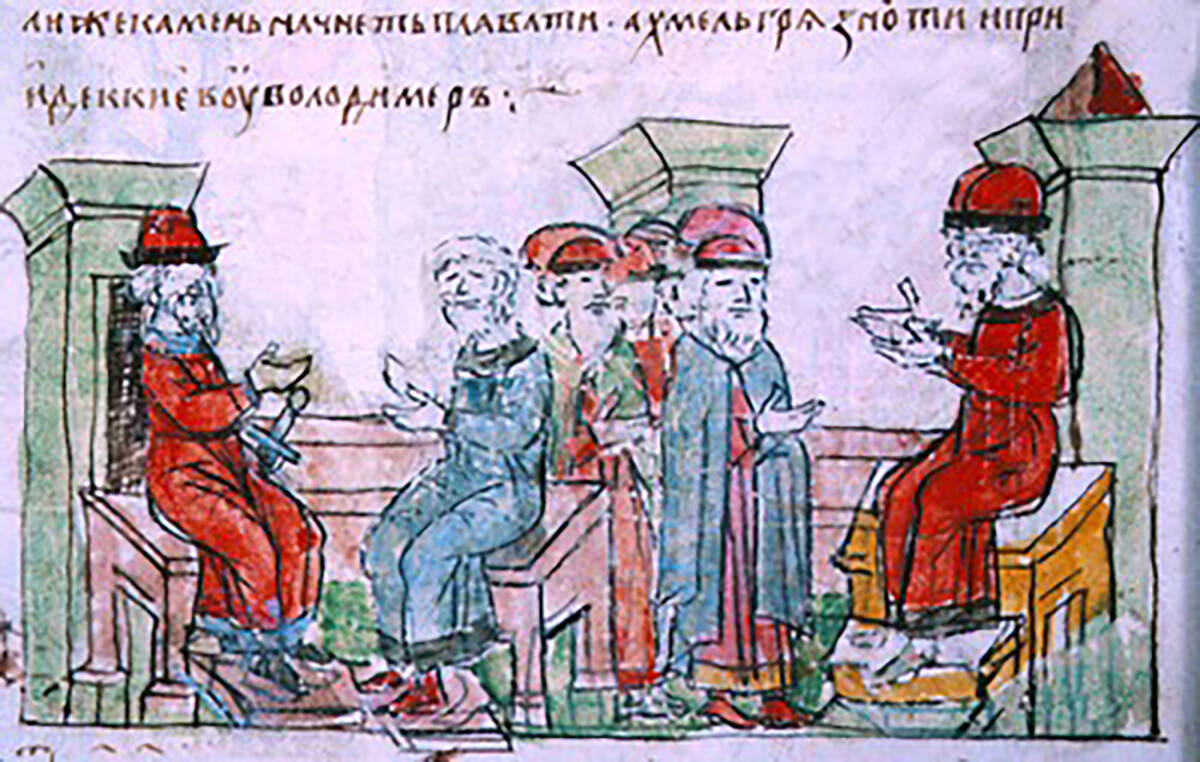 ли же камень начнеть плавати · а хмель грязноти и при
иде к киевоу володимеръ :